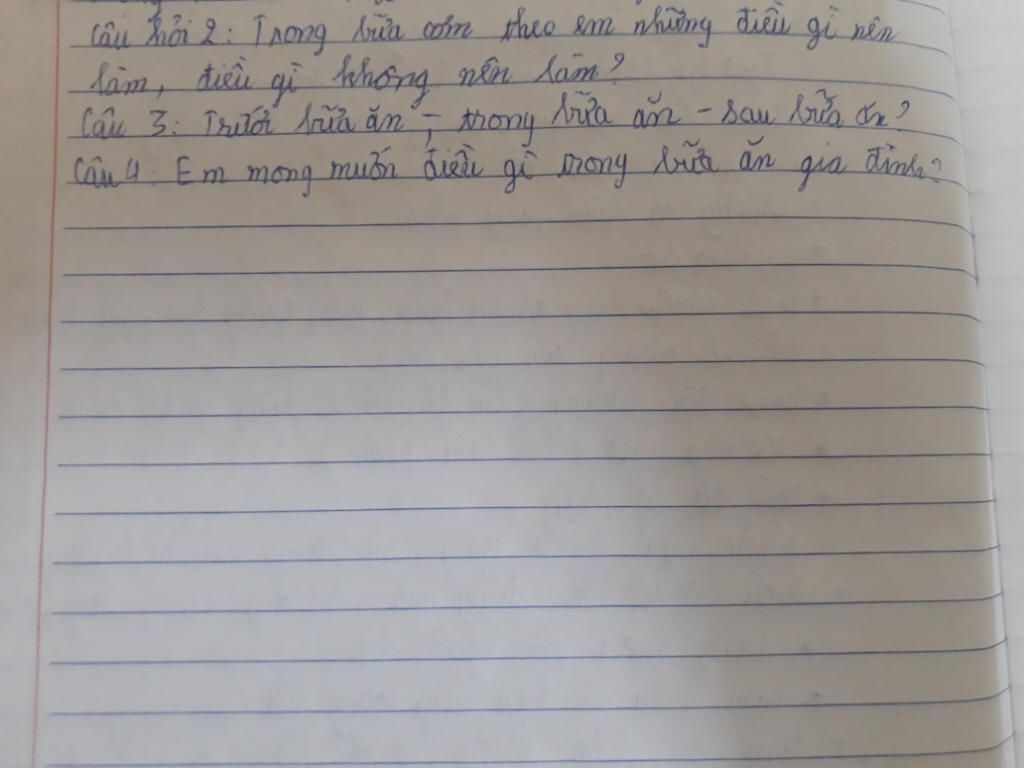 Câu hỏi 2: Trong bữa cơm theo em những điều gì nên
làm, điều gì không nên làm?
Câu 3: Trước bữa ăn - trong bữa ăn - sau bữa ăn?
Câu 4: Em mong muốn điều gì trong bữa ăn gia đình?